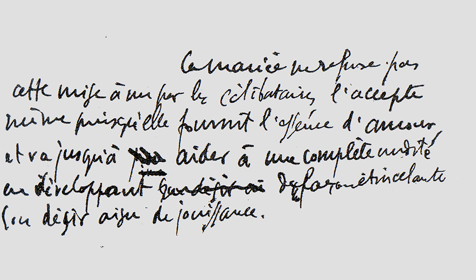 La mariée ne refuse pas
cette mise à nu par les célibataires, l'accepte
même puisqu'elle fournit l'essence d'amour
et va jusqu'à aider à une complète nudité
en développant de façon étincelante
son désir aigu de jouissance.